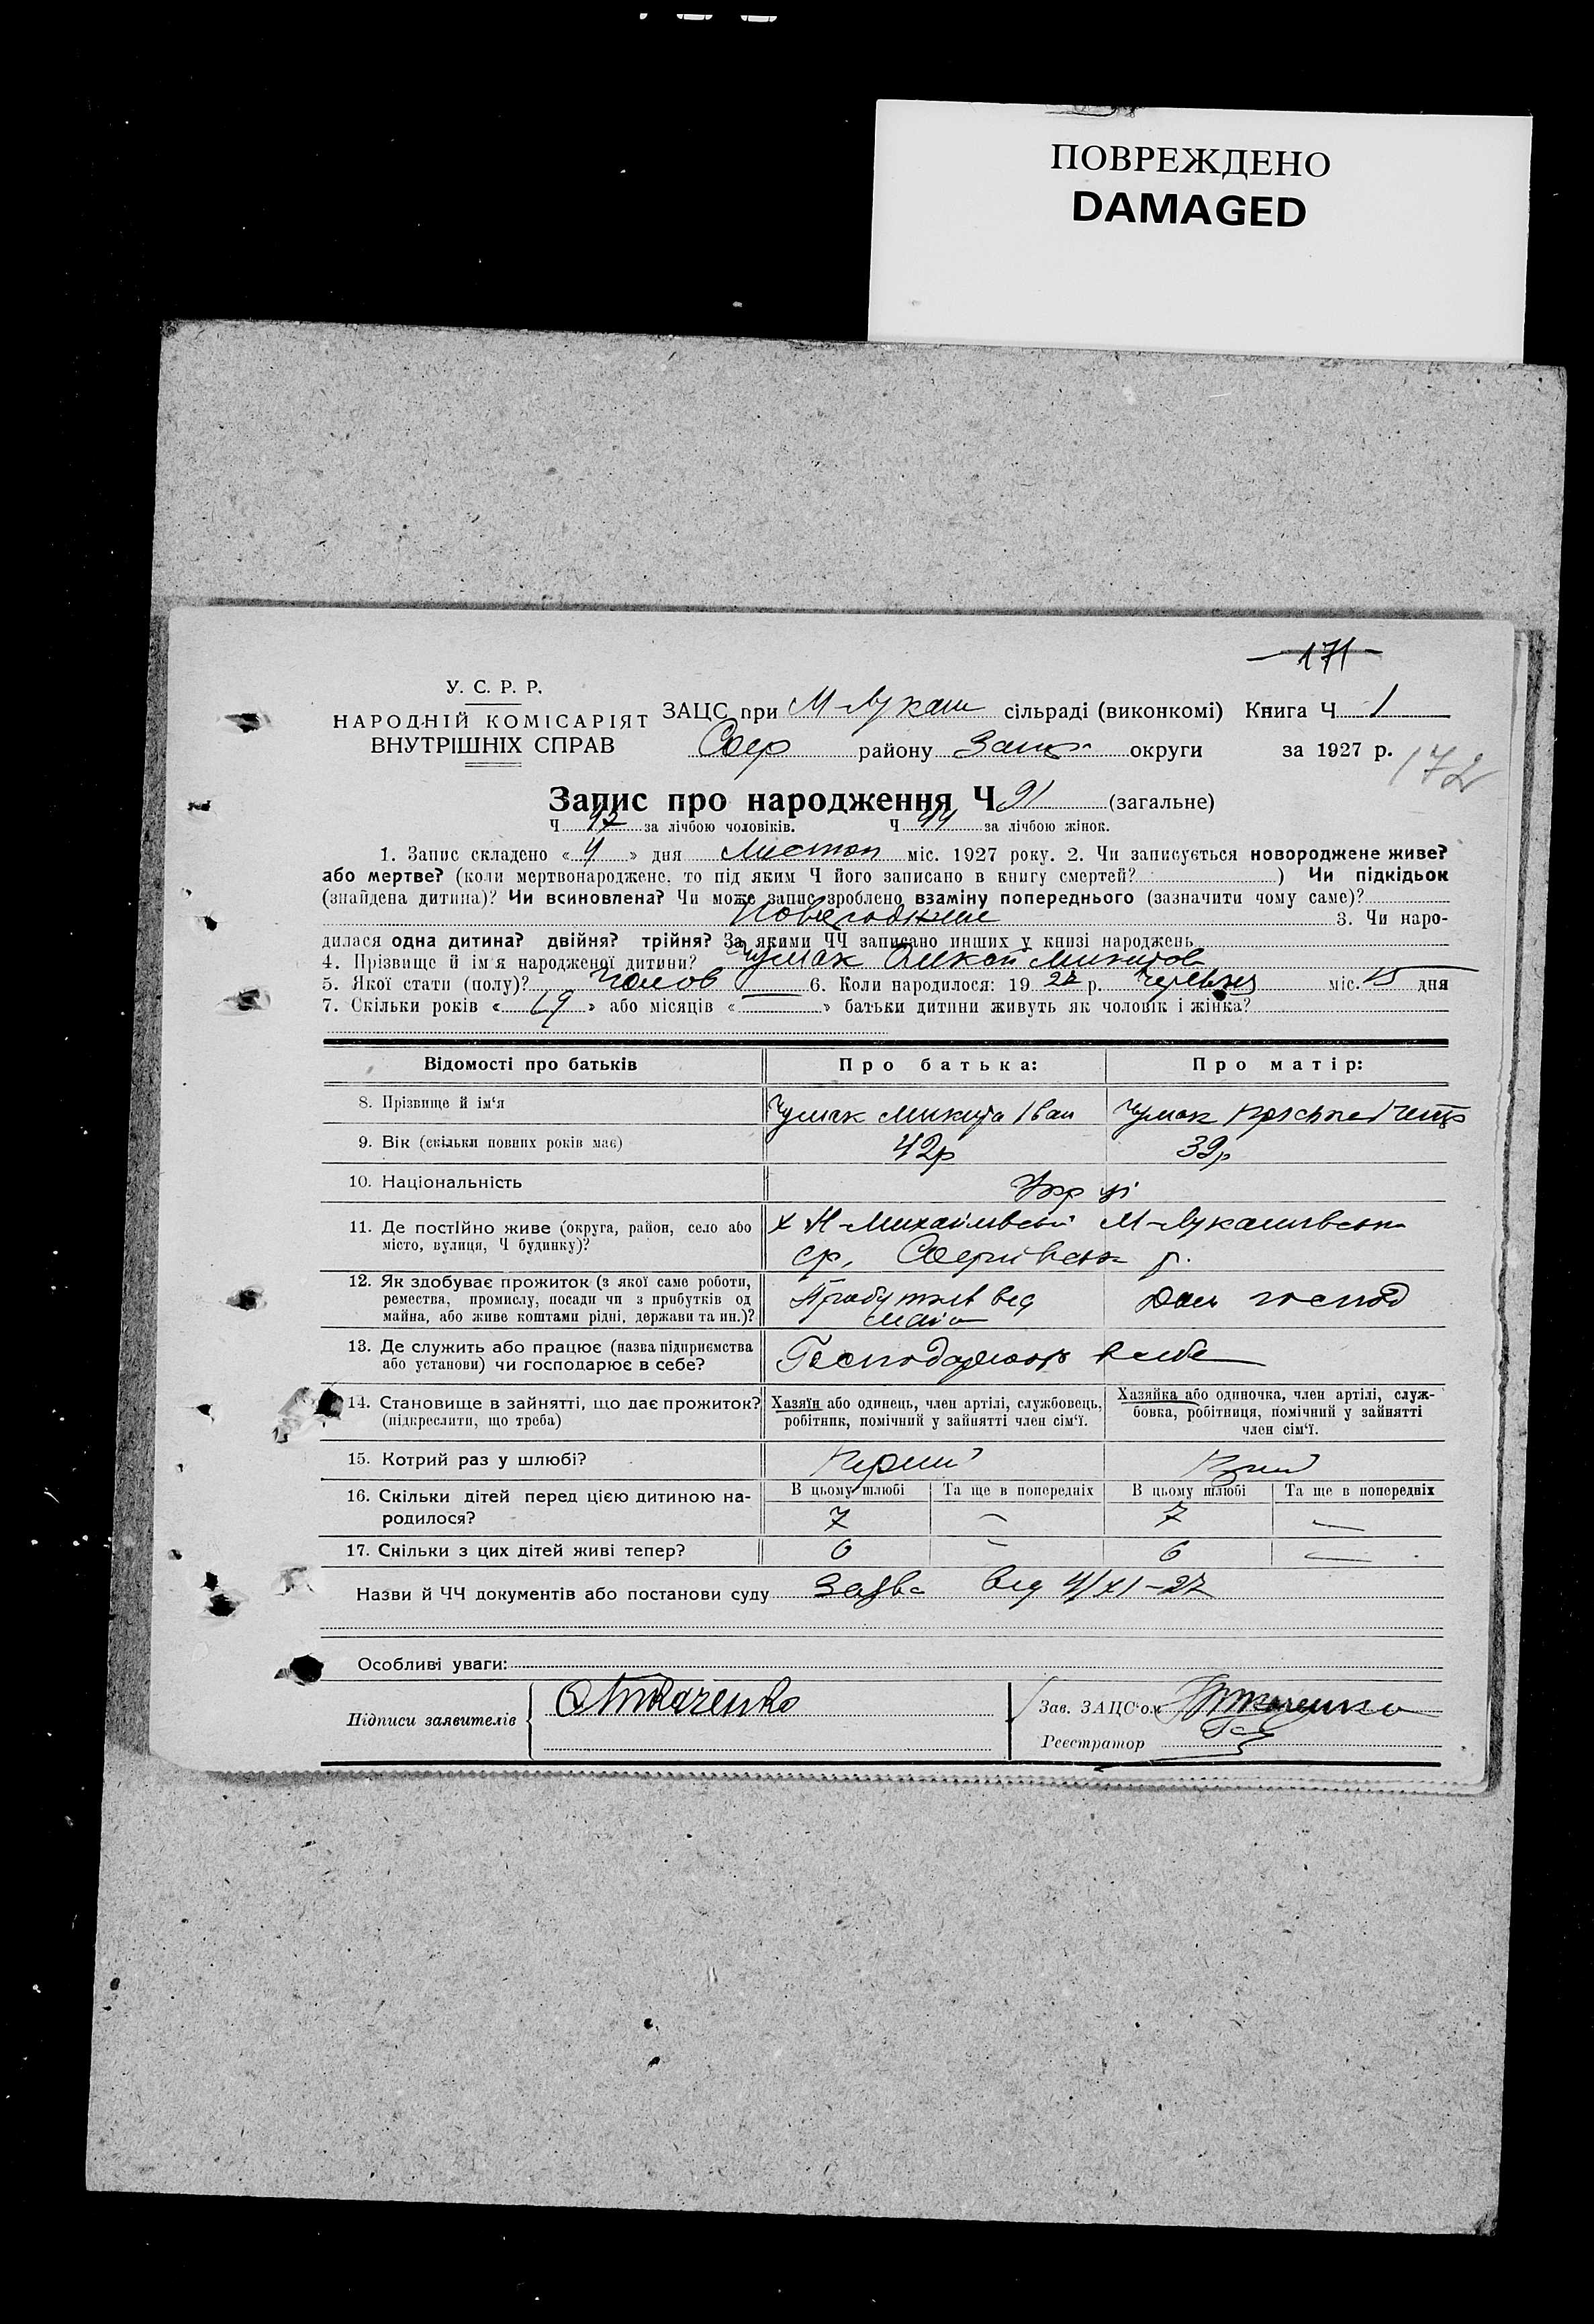 ПОВРЕЖДЕНО
DAMAGED
171
У. С. Р. Р.
НАРОДНІЙ КОМІСАРІЯТ
ВНУТРІШНІХ СПРАВ
ЗАЦС при М-Лукаш сільраді (виконкомі) Книга Ч 1
району округи за 1927 р.
172
Запис про народження Ч 91 (загальне)
Ч 47 за лічбою чоловіків. Ч 44 за лічбою жінок.
1. Запис складено « 4 » дня Листоп міс. 1927 року. 2. Чи записується новороджене живе?
або мертве? (коли мертвонароджене, то під яким Ч його записано в книгу смертей? ) Чи підкідьок
(знайдена дитина)? Чи всиновлена? Чи може запис зроблено взаміну попереднього (зазначити чому саме)?
3. Чи наро-
дилася одна дитина? двійня? трійня? За якими ЧЧ записано инших у книзі народжень
4. Прізвище й ім'я народженої дитини? Чумак Микитов
5. Якої стати (полу)? Чолов 6. Коли народилося: 19 27 р. Червня міс. 15 дня
7. Скільки років « 19 » або місяців « — » батьки дитини живуть як чоловік і жінка?
Відомості про батьків Про батька: Про матір:
8. Прізвище й ім'я Чумак Микита Іван Чумак
9. Вік (скільки повних років має) 42р 39р
10. Національність Укр ці
11. Де постійно живе (округа, район, село або
місто, вулиця, Ч будинку)?
х Н-Михайлівськ М-Лукашівська
ср, р.
12. Як здобуває прожиток (з якої саме роботи,
ремества, промислу, посади чи з прибутків од
майна, або живе коштами рідні, держави та ин.)?
Прибутків від
майна
Дом господ
13. Де служить або працює (назва підприємства
або установи) чи господарює в себе?
Господарюють в себе
14. Становище в зайнятті, що дає прожиток?
(підкреслити, що треба)
Хазяїн або одинець, член артілі, службовець,
робітник, помічний у зайнятті член сім'ї.
Хазяйка або одиночка, член артілі, служ-
бовка, робітниця, помічний у зайнятті
член сім'ї.
15. Котрий раз у шлюбі? Перший
16. Скільки дітей перед цією дитиною на-
родилося?
В цьому шлюбі Та ще в попередніх В цьому шлюбі Та ще в попередніх
7 — 7 —
17. Скільки з цих дітей живі тепер? 6 — 6 —
Назви й ЧЧ документів або постанови суду Заява від 4/XI-27
Особливі уваги:
Підписи заявителів Ткаченко
Зав. ЗАЦС'ом Ткаченко
Реєстратор